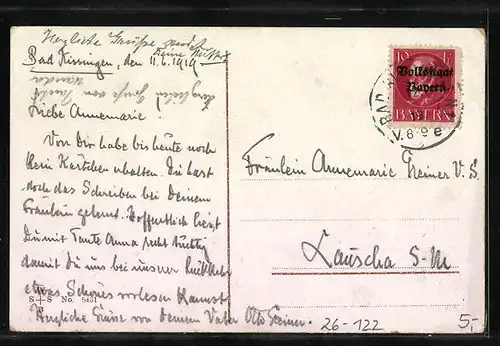 Herzliche Grüsse sendet
Deine Mutter
Bad Kissingen, den 11.6.1919
herzlichen Gruß von Tante
Liebe Annemarie!
Von Dir habe bis heute noch
kein Kärtchen erhalten. Du hast
doch das Schreiben bei Deinem
Fräulein gelernt. Hoffentlich liest
Du mit Tante Anna recht tüchtig
damit Du uns bei unserer Rückkehr
etwas Schönes vorlesen kannst.
Herzliche Grüsse von Deinem Vater Otto Greiner.
S+S No. 5451
10 PF
Volksstaat
Bayern
BAYERN
BAD
V. 8-9
Fräulein Annemarie Greiner V. S.
Lauscha S-M
26-122
5,-